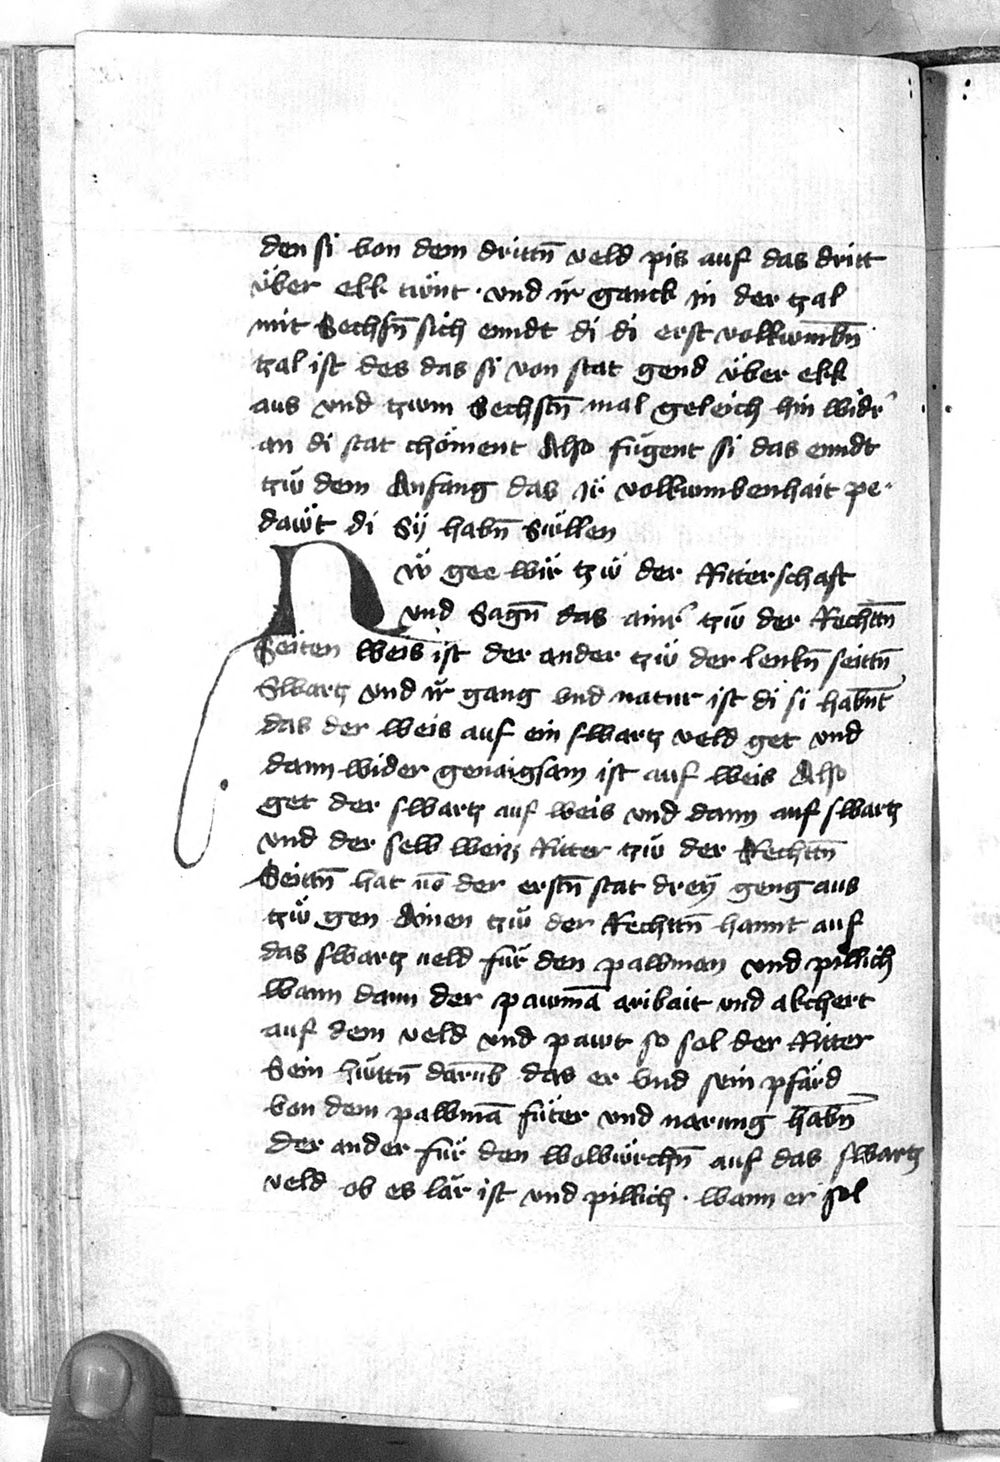 den si von dem drittn̄ veld pis auf das dritt
über ekk twnt · vnd ir ganck in der tzal
mit Sechsn̄ sich enndt di di erst volkwmbn̄
tzal ist des das si von stat gend über ekk
aus vnd tzwm Sechstn̄ mal geleich hin wider
an di stat chöment Also fügent si das enndt
tzw dem Anfang das ir volkwmbenhait pe·
dawt di Sy habn̄ Süllen
Nw gee wir tzw der Ritterschaft
vnd Sagn̄ das ainr tzw der Rechttn̄
Seiten weis ist der ander tzw der lenkn̄ seittn̄
Swartz vnd ir gang vnd natur ist di si habnt
das der weis auf ein swartz veld get vnd
dann wider genaigsam ist auf weis Also
get der swartz auf weis vnd dann auf swartz
vnd der selb weizz Ritter tzw der Rechttn̄
Seittn̄ hat vō der erstn̄ stat dreÿ geng aus
tzw gen Ainen tzw der Rechttn̄ hannt auf
das swartz veld für den pawman vnd pillich
wann dann der pawmā aribait vnd akchert
auf dem veld vnd pawt so sol der Ritter
Sein hüttn̄ darūb das er vnd sein pfärd
von dem pawmā füter vnd narung habn̄
der ander für den wolwürchn̄ auf das swartz
veld ob es lär ist vnd pillich · wann er sol